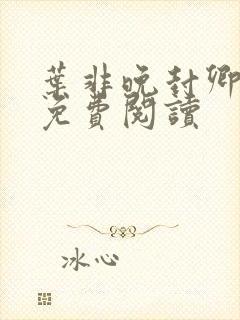 葉非晚封卿
免費閱讀
冰心